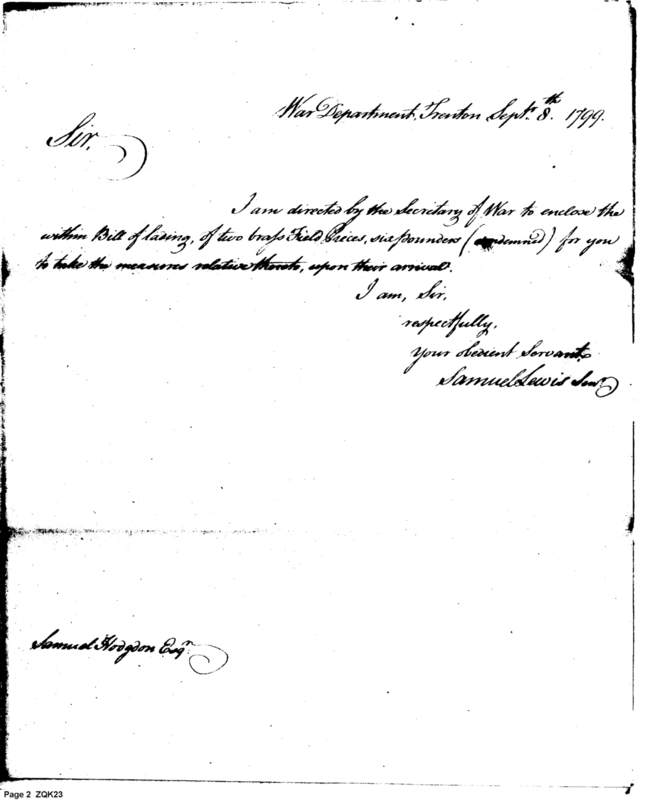 War Department, Trenton Sepr. 8th. 1799.
Sir.
I am directed by the Secretary of War to enclose the
within Bill of lading, of two brass Field Pieces, six pounders (condemned) for you
to take the measures relative thereto, upon their arrival.
I am, Sir,
respectfully,
your obedient Servant,
Samuel Lewis Senr.
Samuel Hodgdon Esqr.
Page 2 ZQK23